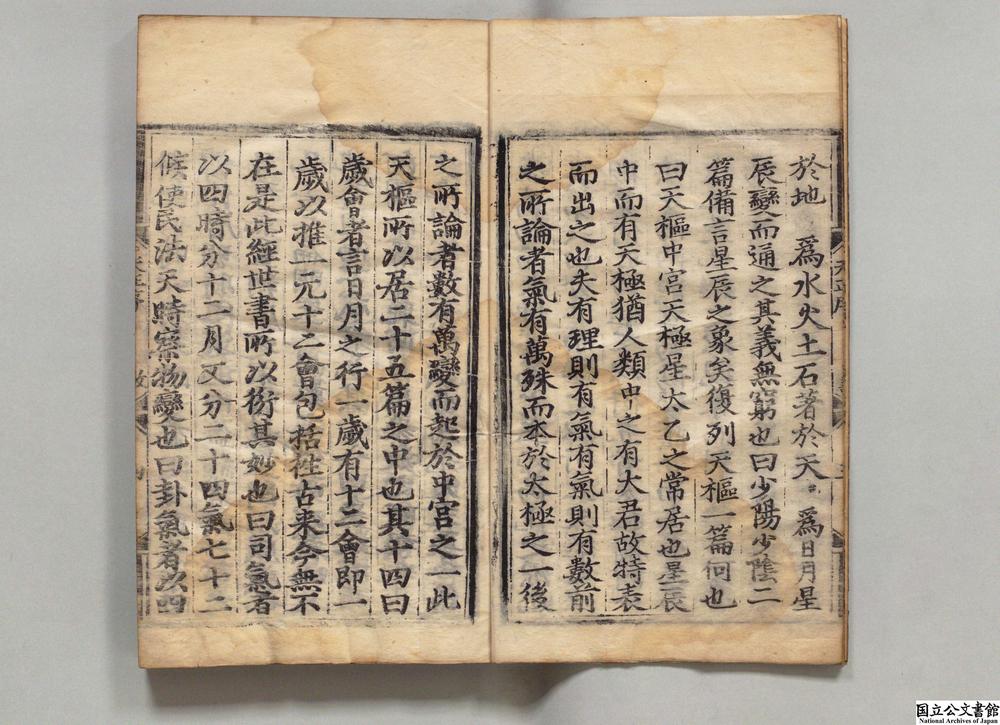 於地 爲水火土石著於天 爲日月星
辰變而通之其義無窮也曰少陽少陰二
篇備言星辰之象矣復列天樞一篇何也
曰天樞中宮天極星太乙之常居也星辰
中而有天極猶人類中之有大君故特表
而出之也夫有理則有氣有氣則有數前
之所論者氣有萬殊而本於太極之一後
之所論者數有萬變而起於中宮之一此
天樞所以居二十五篇之中也其十四曰
歲會者言日月之行一歲有十二會即一
歲以推一元十二會包括徃古来今無不
在是此經世書所以衍其妙也曰司氣者
以四時分十二月又分二十四氣七十二
候使民法天時察物變也曰卦氣者以四
国立公文書館
National Archives of Japan